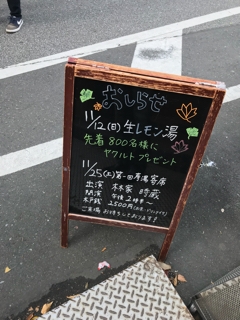 おしらせ
11/12(日)生レモン湯
先着800名様に
ヤクルトプレゼント
11/25(土)第一回 湯客席
出演 林家 時蔵
開演 午後2時半〜
木戸銭 2500円
ご来場お待ちしております!